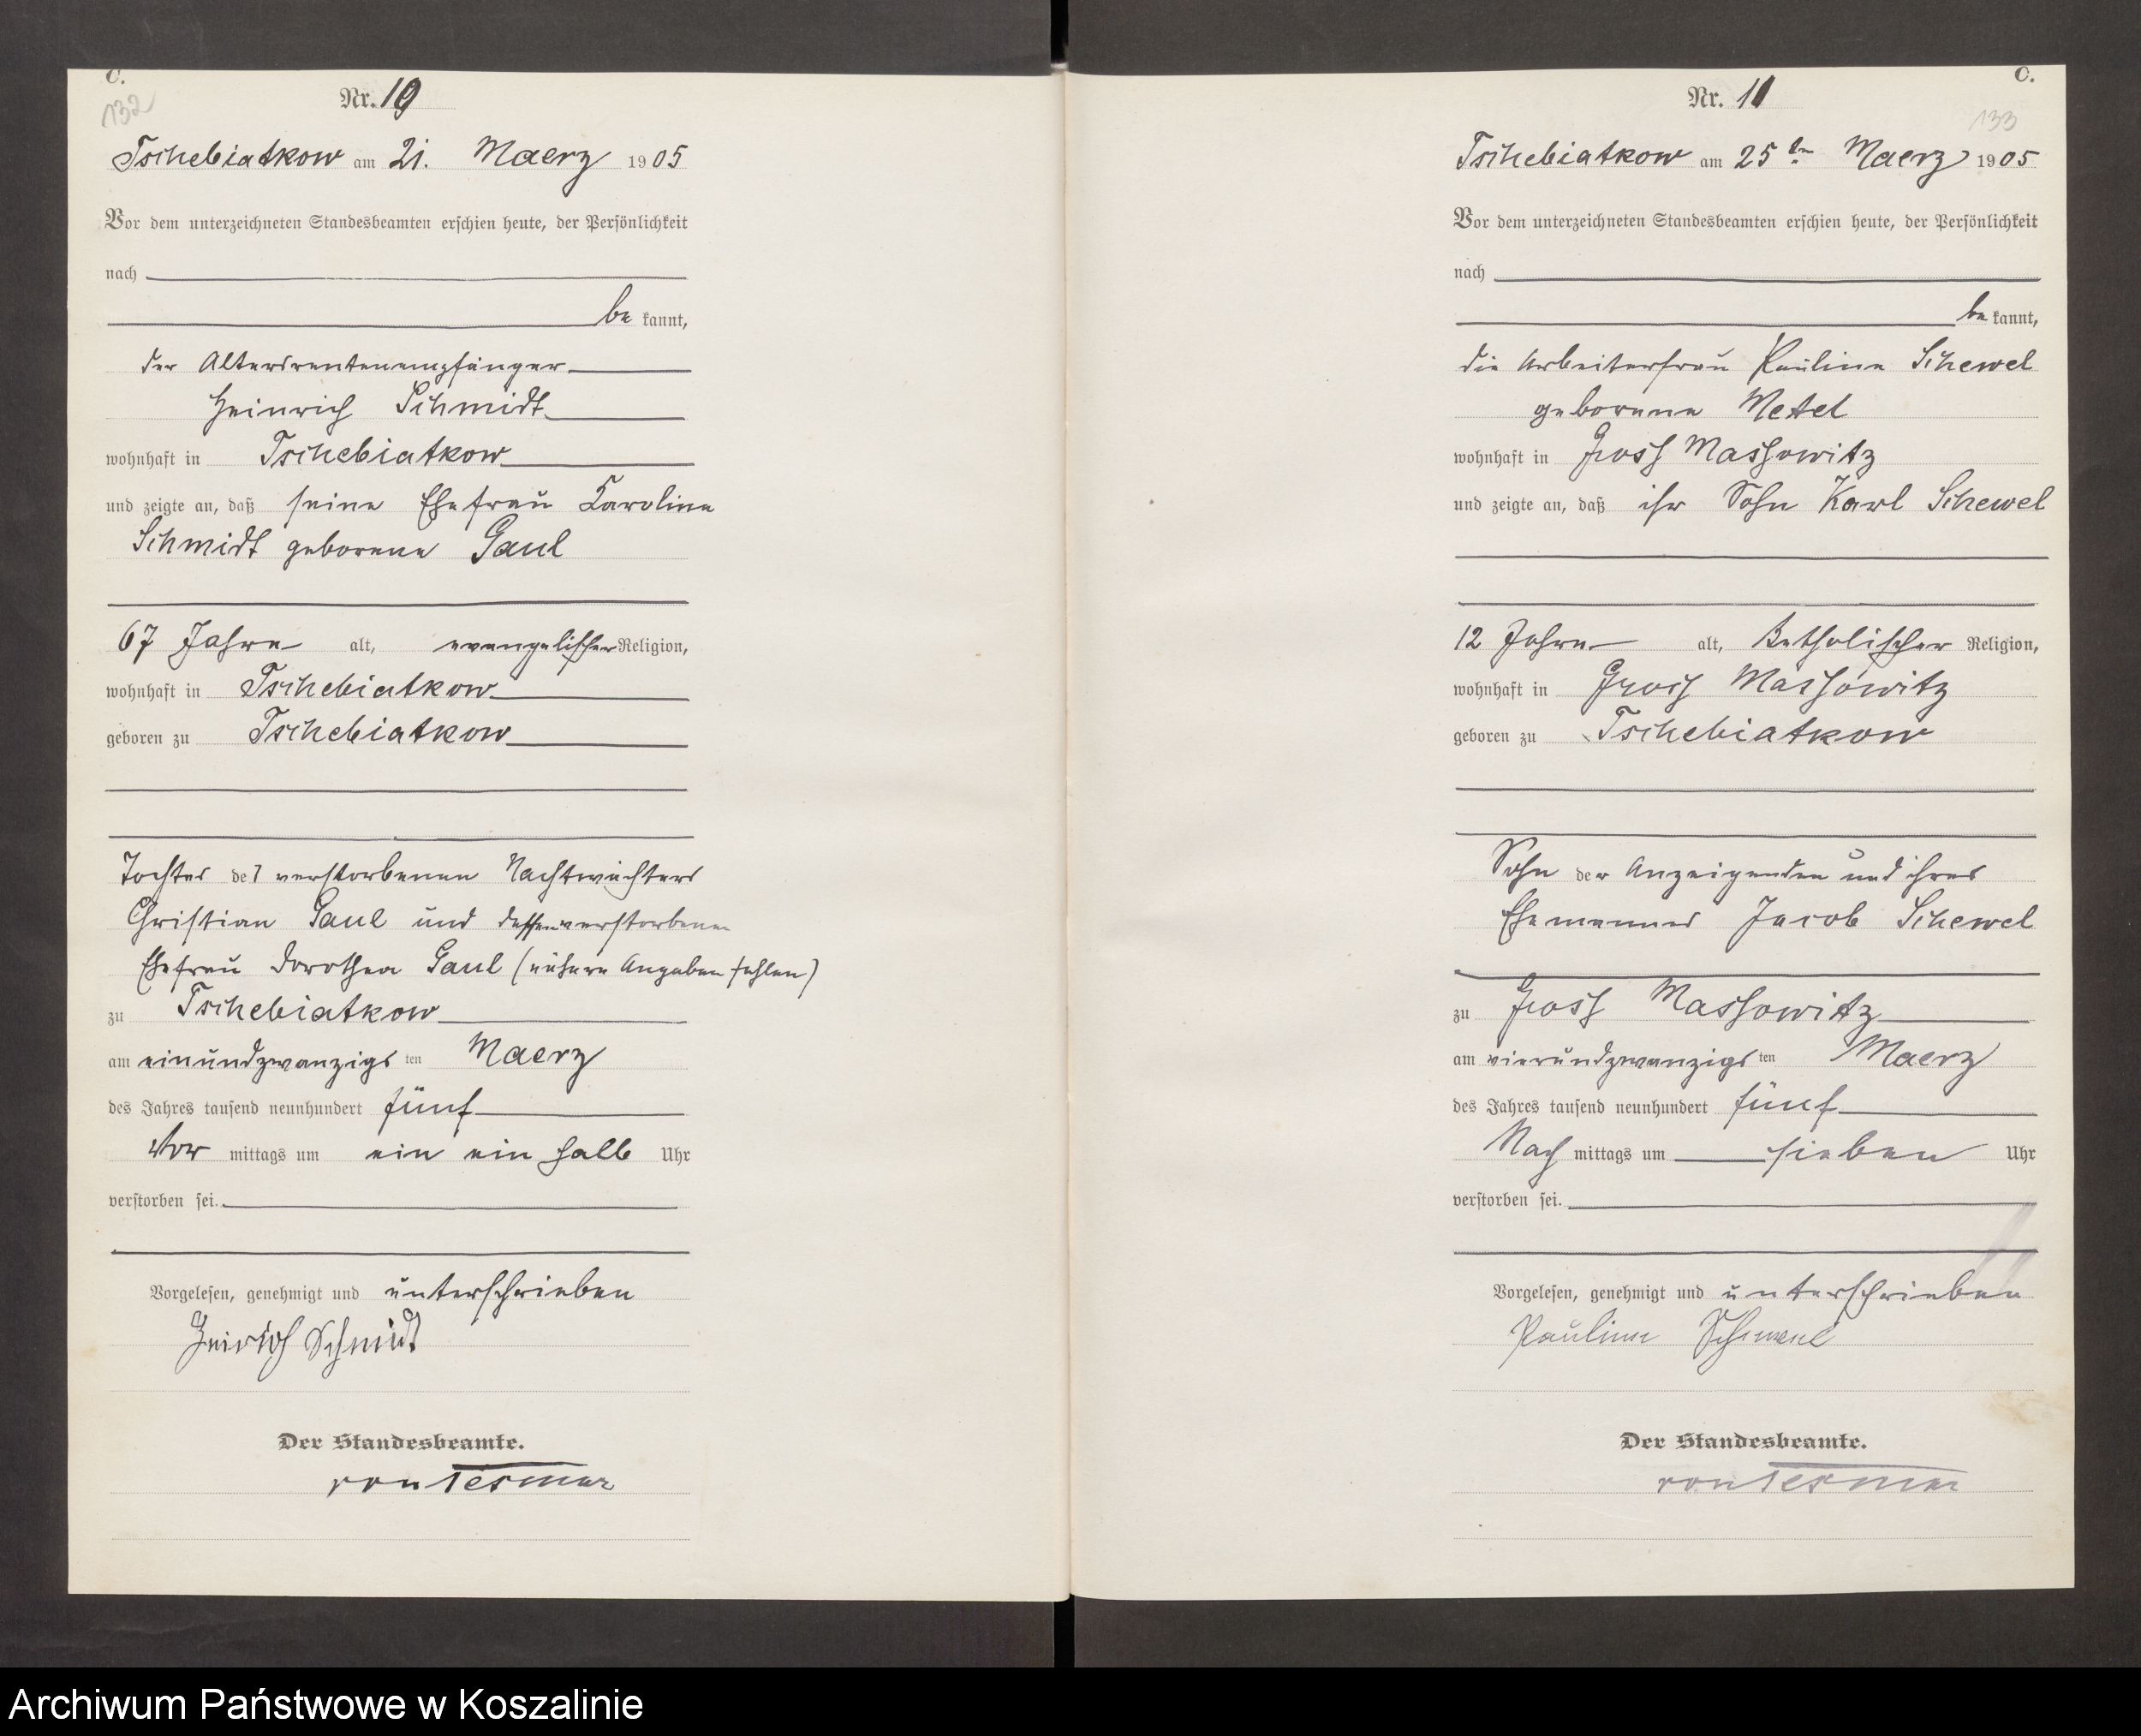 C.
132
Nr. 10
Tschebiatkow am 21. Maerz 1905
Vor dem unterzeichneten Standesbeamten erschien heute, der Persönlichkeit
nach
be kannt,
der Altersrentenempfänger
Heinrich Schmidt
wohnhaft in Tschebiatkow
und zeigte an, daß seine Ehefrau Karoline
Schmidt geborene Gaul
67 Jahre alt, evangelischer Religion,
wohnhaft in Tschebiatkow
geboren zu Tschebiatkow
Tochter des verstorbenen Nachtwächters
Christian Gaul und dessen verstorbenen
Ehefrau Dorothea Gaul (nähere Angaben fehlen)
zu Tschebiatkow
am einundzwanzigs ten Maerz
des Jahres tausend neunhundert fünf
Vor mittags um ein ein halb Uhr
verstorben sei.
Vorgelesen, genehmigt und unterschrieben
Heinrich Schmidt
Der Standesbeamte.
von Tesmar
C.
133
Nr. 11
Tschebiatkow am 25ten Maerz 1905
Vor dem unterzeichneten Standesbeamten erschien heute, der Persönlichkeit
nach
be kannt,
die Arbeiterfrau Pauline Schewel
geborene Metel
wohnhaft in Gross Massowitz
und zeigte an, daß ihr Sohn Karl Schewel
12 Jahre alt, katholischer Religion,
wohnhaft in Gross Massowitz
geboren zu Tschebiatkow
Sohn der Anzeigenden und ihres
Ehemannes Jacob Schewel
zu Gross Massowitz
am vierundzwanzigs ten Maerz
des Jahres tausend neunhundert fünf
Nach mittags um sieben Uhr
verstorben sei.
Vorgelesen, genehmigt und unterschrieben
Pauline Schewel
Der Standesbeamte.
von Tesmar
Archiwum Państwowe w Koszalinie